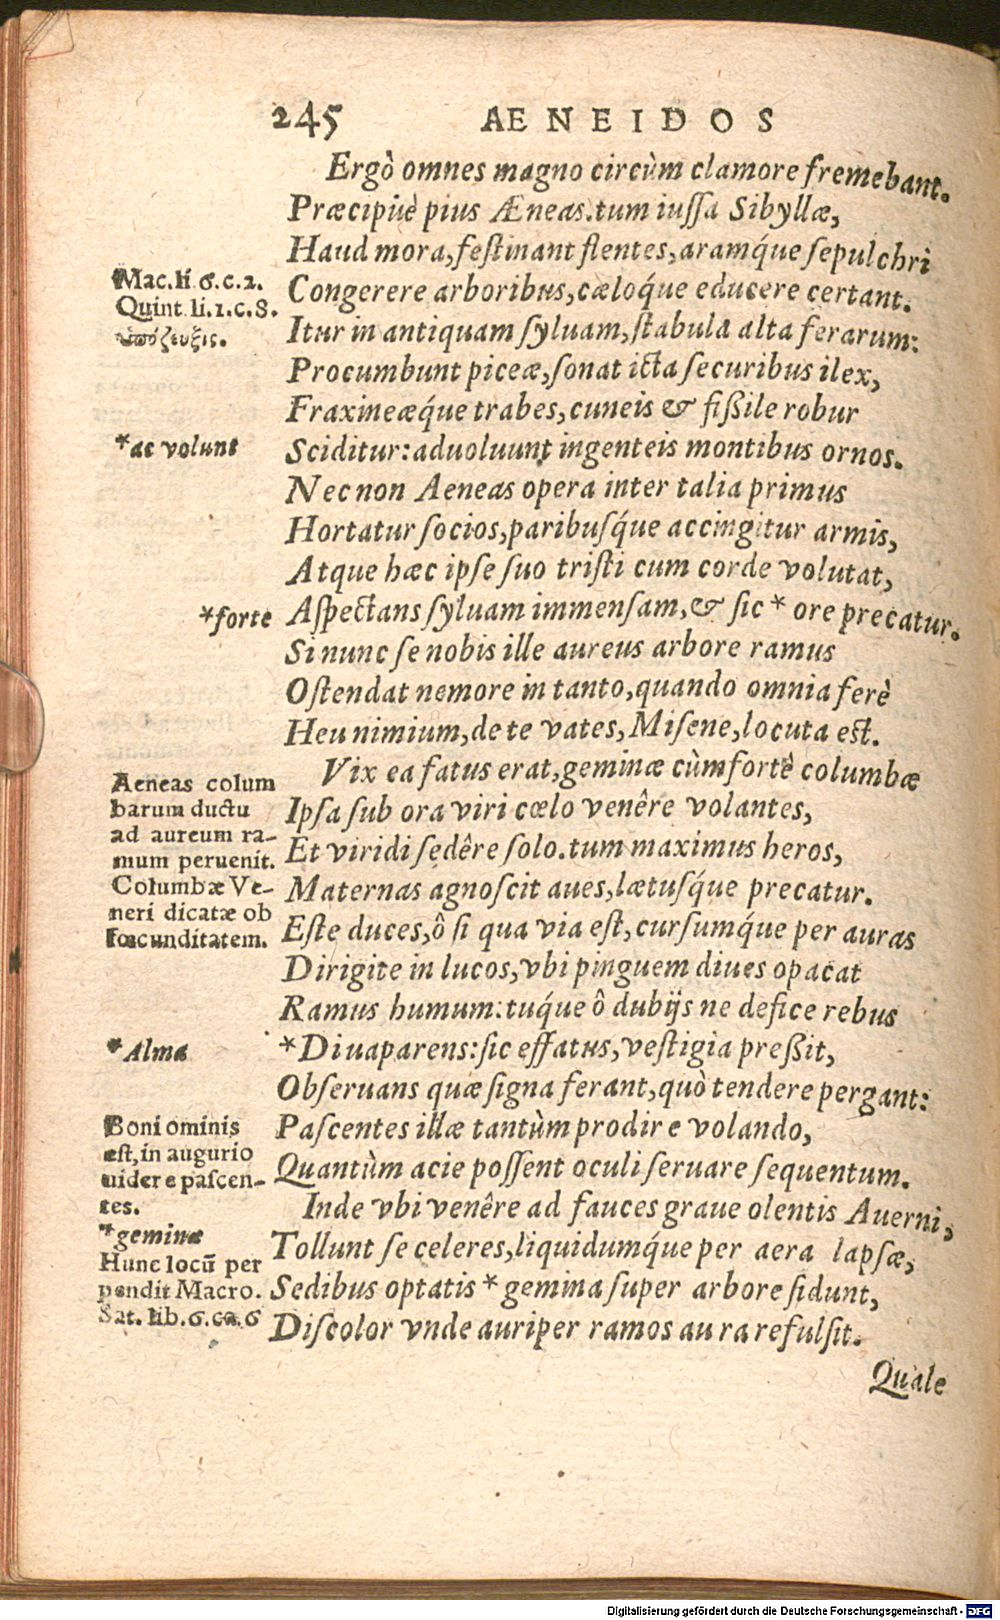 245 AENEIDOS
Ergò omnes magno circùm clamore fremebant.
Præcipuè pius Æneas.tum iuſſa Sibyllæ,
Haud mora, feſtinant flentes, aramq́ue ſepulchri
Mac.li 6.c.2.
Congerere arboribus, cæloq́ue educere certant.
Quint.li.1.c.8.
Itur in antiquam ſyluam, ſtabula alta ferarum:
ὑπόζευξις.
Procumbunt piceæ, ſonat icta ſecuribus ilex,
Fraxineæq́ue trabes, cuneis & fiſſile robur
*ac volunt
Sciditur: aduoluunt ingenteis montibus ornos.
Nec non Aeneas opera inter talia primus
Hortatur ſocios, paribuſq́ue accingitur armis,
Atque hæc ipſe ſuo triſti cum corde volutat,
*forte
Aſpectans ſyluam immenſam, & ſic * ore precatur.
Si nunc ſe nobis ille aureus arbore ramus
Oſtendat nemore in tanto, quando omnia ferè
Heu nimium, de te vates, Miſene, locuta eſt.
Vix ea fatus erat, geminæ cùm fortè columbæ
Aeneas colum
barum ductu
ad aureum ra-
mum peruenit.
Columbæ Ve-
neri dicatæ ob
fœcunditatem.
Ipſa ſub ora viri cœlo venêre volantes,
Et viridi ſedêre ſolo.tum maximus heros,
Maternas agnoſcit aues, lætuſq́ue precatur.
Eſte duces, ô ſi qua via eſt, curſumq́ue per auras
Dirigite in lucos, vbi pinguem diues opacat
Ramus humum: tuq́ue ô dubijs ne defice rebus
*Alma
*Diua parens: ſic effatus, veſtigia preſſit,
Obſeruans quæ ſigna ferant, quò tendere pergant:
Boni ominis
eſt, in augurio
uidere paſcen-
tes.
Paſcentes illæ tantùm prodire volando,
Quantùm acie poſſent oculi ſeruare ſequentum.
Inde vbi venêre ad fauces graue olentis Auerni,
*geminæ
Hunc locū per
pendit Macro.
Sat. lib.6.ca.6
Tollunt ſe celeres, liquidumq́ue per aera lapſæ,
Sedibus optatis * gemina ſuper arbore ſidunt,
Diſcolor vnde auri per ramos aura refulſit.
Quale
Digitalisierung gefördert durch die Deutsche Forschungsgemeinschaft - DFG